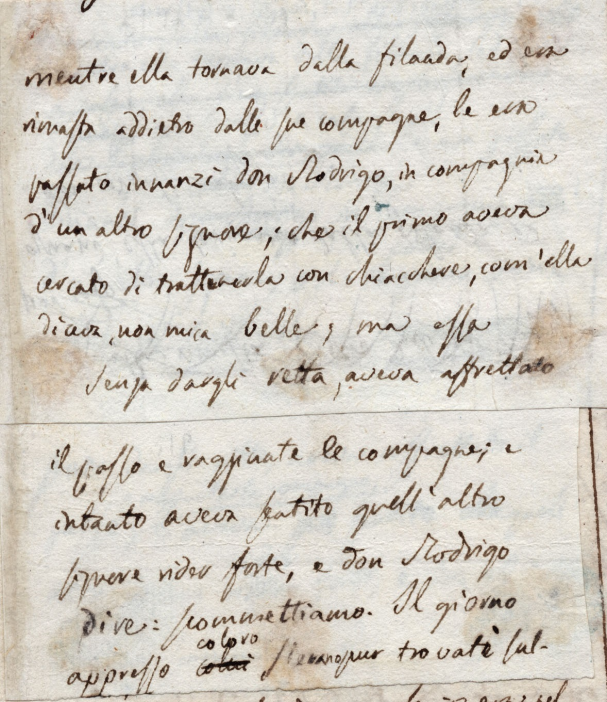 mentre ella tornava dalla filanda, ed era
rimasta addietro dalle sue compagne, le era
passato innanzi don Rodrigo, in compagnia
d'un altro signore; che il primo aveva
cercato di trattenerla con chiacchere, com'ella
diceva, non mica belle; ma essa
senza dargli retta, aveva affrettato
il passo e raggiunte le compagne; e
intanto aveva sentito quell'altro
signore rider forte, e don Rodrigo
dire: scommettiamo. Il giorno
coloro
appresso s'erano pur trovati sul-